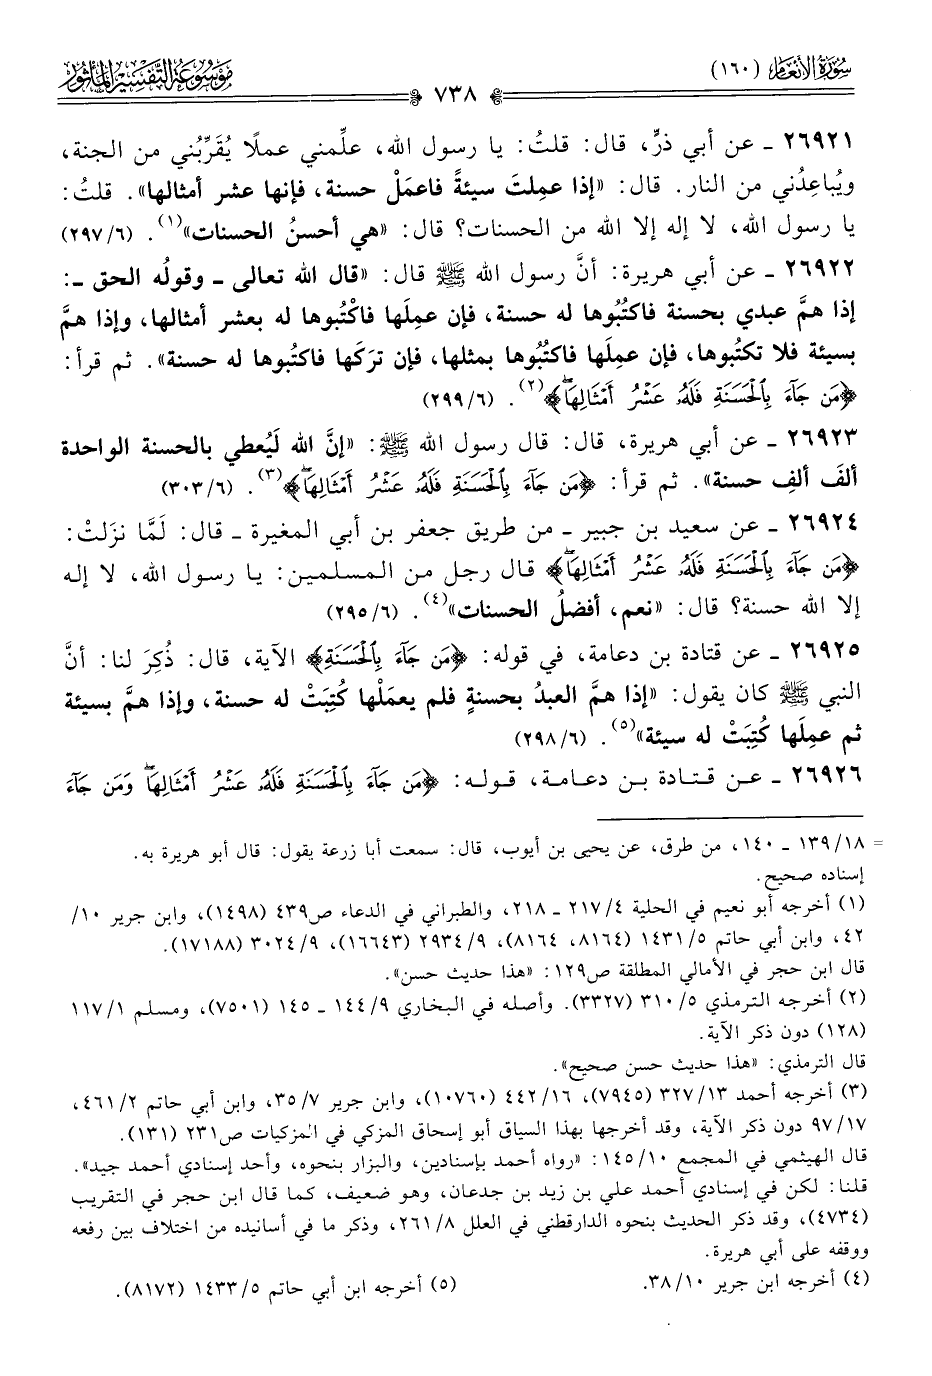 سورة الأنعام (١٦٠)
موسوعة التفسير المأثور
٧٣٨
٢٦٩٢١ ـ عن أبي ذرٍّ، قال: قلتُ: يا رسول الله، علِّمني عملًا يُقَرِّبُني من الجنة،
ويُباعِدُني من النار. قال: «إذا عمِلتَ سيئةً فاعمَلْ حسنة، فإنها عشر أمثالها». قلتُ:
يا رسول الله، لا إله إلا الله من الحسنات؟ قال: «هي أحسنُ الحسنات»(١). (٢٩٧/٦)
٢٦٩٢٢ ـ عن أبي هريرة: أنَّ رسول الله ﷺ قال: «قال الله تعالى ـ وقولُه الحق ـ:
إذا همَّ عبدي بحسنة فاكتُبُوها له حسنة، فإن عمِلَها فاكْتُبوها له بعشر أمثالها، وإذا همَّ
بسيئة فلا تكتُبوها، فإن عمِلَها فاكتُبُوها بمثلها، فإن ترَكَها فاكتُبوها له حسنة». ثم قرأ:
﴿مَن جَآءَ بِٱلۡحَسَنَةِ فَلَهُۥ عَشۡرُ أَمۡثَالِهَاۖ﴾(٢). (٢٩٩/٦)
٢٦٩٢٣ ـ عن أبي هريرة، قال: قال رسول الله ﷺ: «إنَّ الله لَيُعطي بالحسنة الواحدة
ألفَ ألفِ حسنة». ثم قرأ: ﴿مَن جَآءَ بِٱلۡحَسَنَةِ فَلَهُۥ عَشۡرُ أَمۡثَالِهَاۖ﴾(٣). (٣٠٣/٦)
٢٦٩٢٤ ـ عن سعيد بن جبير ـ من طريق جعفر بن أبي المغيرة ـ قال: لَمَّا نزَلتْ:
﴿مَن جَآءَ بِٱلۡحَسَنَةِ فَلَهُۥ عَشۡرُ أَمۡثَالِهَاۖ﴾ قال رجل من المسلمين: يا رسول الله، لا إله
إلا الله حسنة؟ قال: «نعم، أفضلُ الحسنات»(٤). (٢٩٥/٦)
٢٦٩٢٥ ـ عن قتادة بن دعامة، في قوله: ﴿مَن جَآءَ بِٱلۡحَسَنَةِ﴾ الآية، قال: ذُكِرَ لنا: أنَّ
النبي ﷺ كان يقول: «إذا همَّ العبدُ بحسنةٍ فلم يعمَلْها كُتِبَتْ له حسنة، وإذا همَّ بسيئة
ثم عمِلَها كُتِبَتْ له سيئة»(٥). (٢٩٨/٦)
٢٦٩٢٦ ـ عن قتادة بن دعامة، قوله: ﴿مَن جَآءَ بِٱلۡحَسَنَةِ فَلَهُۥ عَشۡرُ أَمۡثَالِهَاۖ وَمَن جَآءَ
= ١٣٩/١٨ ـ ١٤٠، من طرق، عن يحيى بن أيوب، قال: سمعت أبا زرعة يقول: قال أبو هريرة به.
إسناده صحيح.
(١) أخرجه أبو نعيم في الحلية ٢١٧/٤ ـ ٢١٨، والطبراني في الدعاء ص٤٣٩ (١٤٩٨)، وابن جرير ١٠/
٤٢، وابن أبي حاتم ١٤٣١/٥ (٨١٦٤، ٨١٦٤)، ٢٩٣٤/٩ (١٦٦٤٣)، ٣٠٢٤/٩ (١٧١٨٨).
قال ابن حجر في الأمالي المطلقة ص١٢٩: «هذا حديث حسن».
(٢) أخرجه الترمذي ٣١٠/٥ (٣٣٢٧). وأصله في البخاري ١٤٤/٩ ـ ١٤٥ (٧٥٠١)، ومسلم ١١٧/١
(١٢٨) دون ذكر الآية.
قال الترمذي: «هذا حديث حسن صحيح».
(٣) أخرجه أحمد ٣٢٧/١٣ (٧٩٤٥)، ٤٤٢/١٦ (١٠٧٦٠)، وابن جرير ٣٥/٧، وابن أبي حاتم ٤٦١/٢،
٩٧/١٧ دون ذكر الآية، وقد أخرجها بهذا السياق أبو إسحاق المزكي في المزكيات ص٢٣١ (١٣١).
قال الهيثمي في المجمع ١٤٥/١٠: «رواه أحمد بإسنادين، والبزار بنحوه، وأحد إسنادي أحمد جيد».
قلنا: لكن في إسنادي أحمد علي بن زيد بن جدعان، وهو ضعيف، كما قال ابن حجر في التقريب
(٤٧٣٤)، وقد ذكر الحديث بنحوه الدارقطني في العلل ٢٦١/٨، وذكر ما في أسانيده من اختلاف بين رفعه
ووقفه على أبي هريرة.
(٤) أخرجه ابن جرير ٣٨/١٠. (٥) أخرجه ابن أبي حاتم ١٤٣٣/٥ (٨١٧٢).